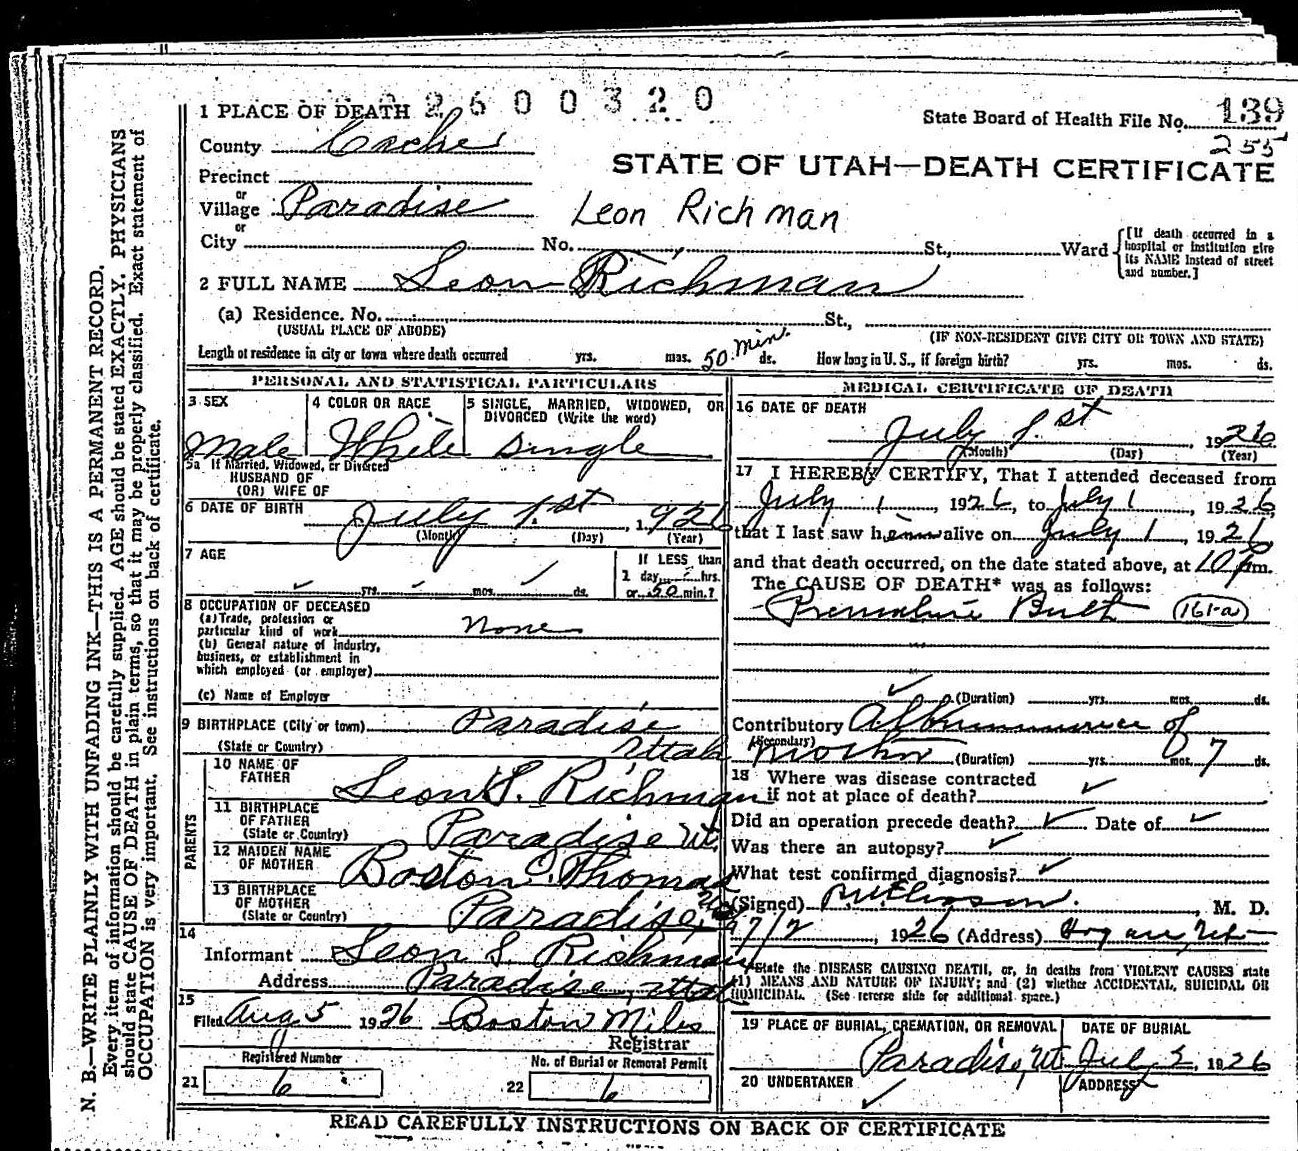 1 PLACE OF DEATH 2600320
State Board of Health File No. 139
255
County Cache
STATE OF UTAH—DEATH CERTIFICATE
Precinct
or
Village Paradise
Leon Richman
or
City No. St., Ward
[If death occurred in a hospital or institution give its NAME instead of street and number.]
2 FULL NAME Leon Richman
(a) Residence. No. St.,
(USUAL PLACE OF ABODE) (IF NON-RESIDENT GIVE CITY OR TOWN AND STATE)
Length of residence in city or town where death occurred yrs. mos. 50 min. ds. How long in U. S., if foreign birth? yrs. mos. ds.
PERSONAL AND STATISTICAL PARTICULARS
3 SEX 4 COLOR OR RACE 5 SINGLE, MARRIED, WIDOWED, OR
DIVORCED (Write the word)
Male White Single
5a If Married, Widowed, or Divorced
HUSBAND OF
(OR) WIFE OF
6 DATE OF BIRTH July 1st, 1926
(Month) (Day) (Year)
7 AGE If LESS than
1 day, hrs.
yrs. mos. ds. or 50 min.?
8 OCCUPATION OF DECEASED
(a) Trade, profession or
particular kind of work None
(b) General nature of Industry,
business, or establishment in
which employed (or employer)
(c) Name of Employer
9 BIRTHPLACE (City or town) Paradise
(State or Country) Uttah
PARENTS
10 NAME OF
FATHER Leon S. Richman
11 BIRTHPLACE
OF FATHER
(State or Country) Paradise Ut.
12 MAIDEN NAME
OF MOTHER Boston Thomas
13 BIRTHPLACE
OF MOTHER
(State or Country) Paradise,
14
Informant Leon S. Richman
Address Paradise, Uttah
15
Filed Aug 5 1926 Boston Miles
Registrar
Registered Number No. of Burial or Removal Permit
21 6 22 6
MEDICAL CERTIFICATE OF DEATH
16 DATE OF DEATH
July 1st, 1926
(Month) (Day) (Year)
17 I HEREBY CERTIFY, That I attended deceased from
July 1, 1926, to July 1, 1926,
that I last saw him alive on July 1, 1926
and that death occurred, on the date stated above, at 10 pm.
The CAUSE OF DEATH* was as follows:
Premature Birth (161-a)
(Duration) yrs. mos. ds.
Contributory of
(Secondary) (Duration) yrs. mos. 7 ds.
18 Where was disease contracted
if not at place of death?
Did an operation precede death? Date of
Was there an autopsy?
What test confirmed diagnosis?
(Signed) , M. D.
7/2, 1926 (Address)
*State the DISEASE CAUSING DEATH, or, in deaths from VIOLENT CAUSES state
(1) MEANS AND NATURE OF INJURY; and (2) whether ACCIDENTAL, SUICIDAL OR
HOMICIDAL. (See reverse side for additional space.)
19 PLACE OF BURIAL, CREMATION, OR REMOVAL DATE OF BURIAL
Paradise, Ut. July 1926
20 UNDERTAKER ADDRESS
READ CAREFULLY INSTRUCTIONS ON BACK OF CERTIFICATE
N. B.—WRITE PLAINLY WITH UNFADING INK—THIS IS A PERMANENT RECORD.
Every item of information should be carefully supplied. AGE should be stated EXACTLY. PHYSICIANS
should state CAUSE OF DEATH in plain terms, so that it may be properly classified. Exact statement of
OCCUPATION is very important. See instructions on back of certificate.